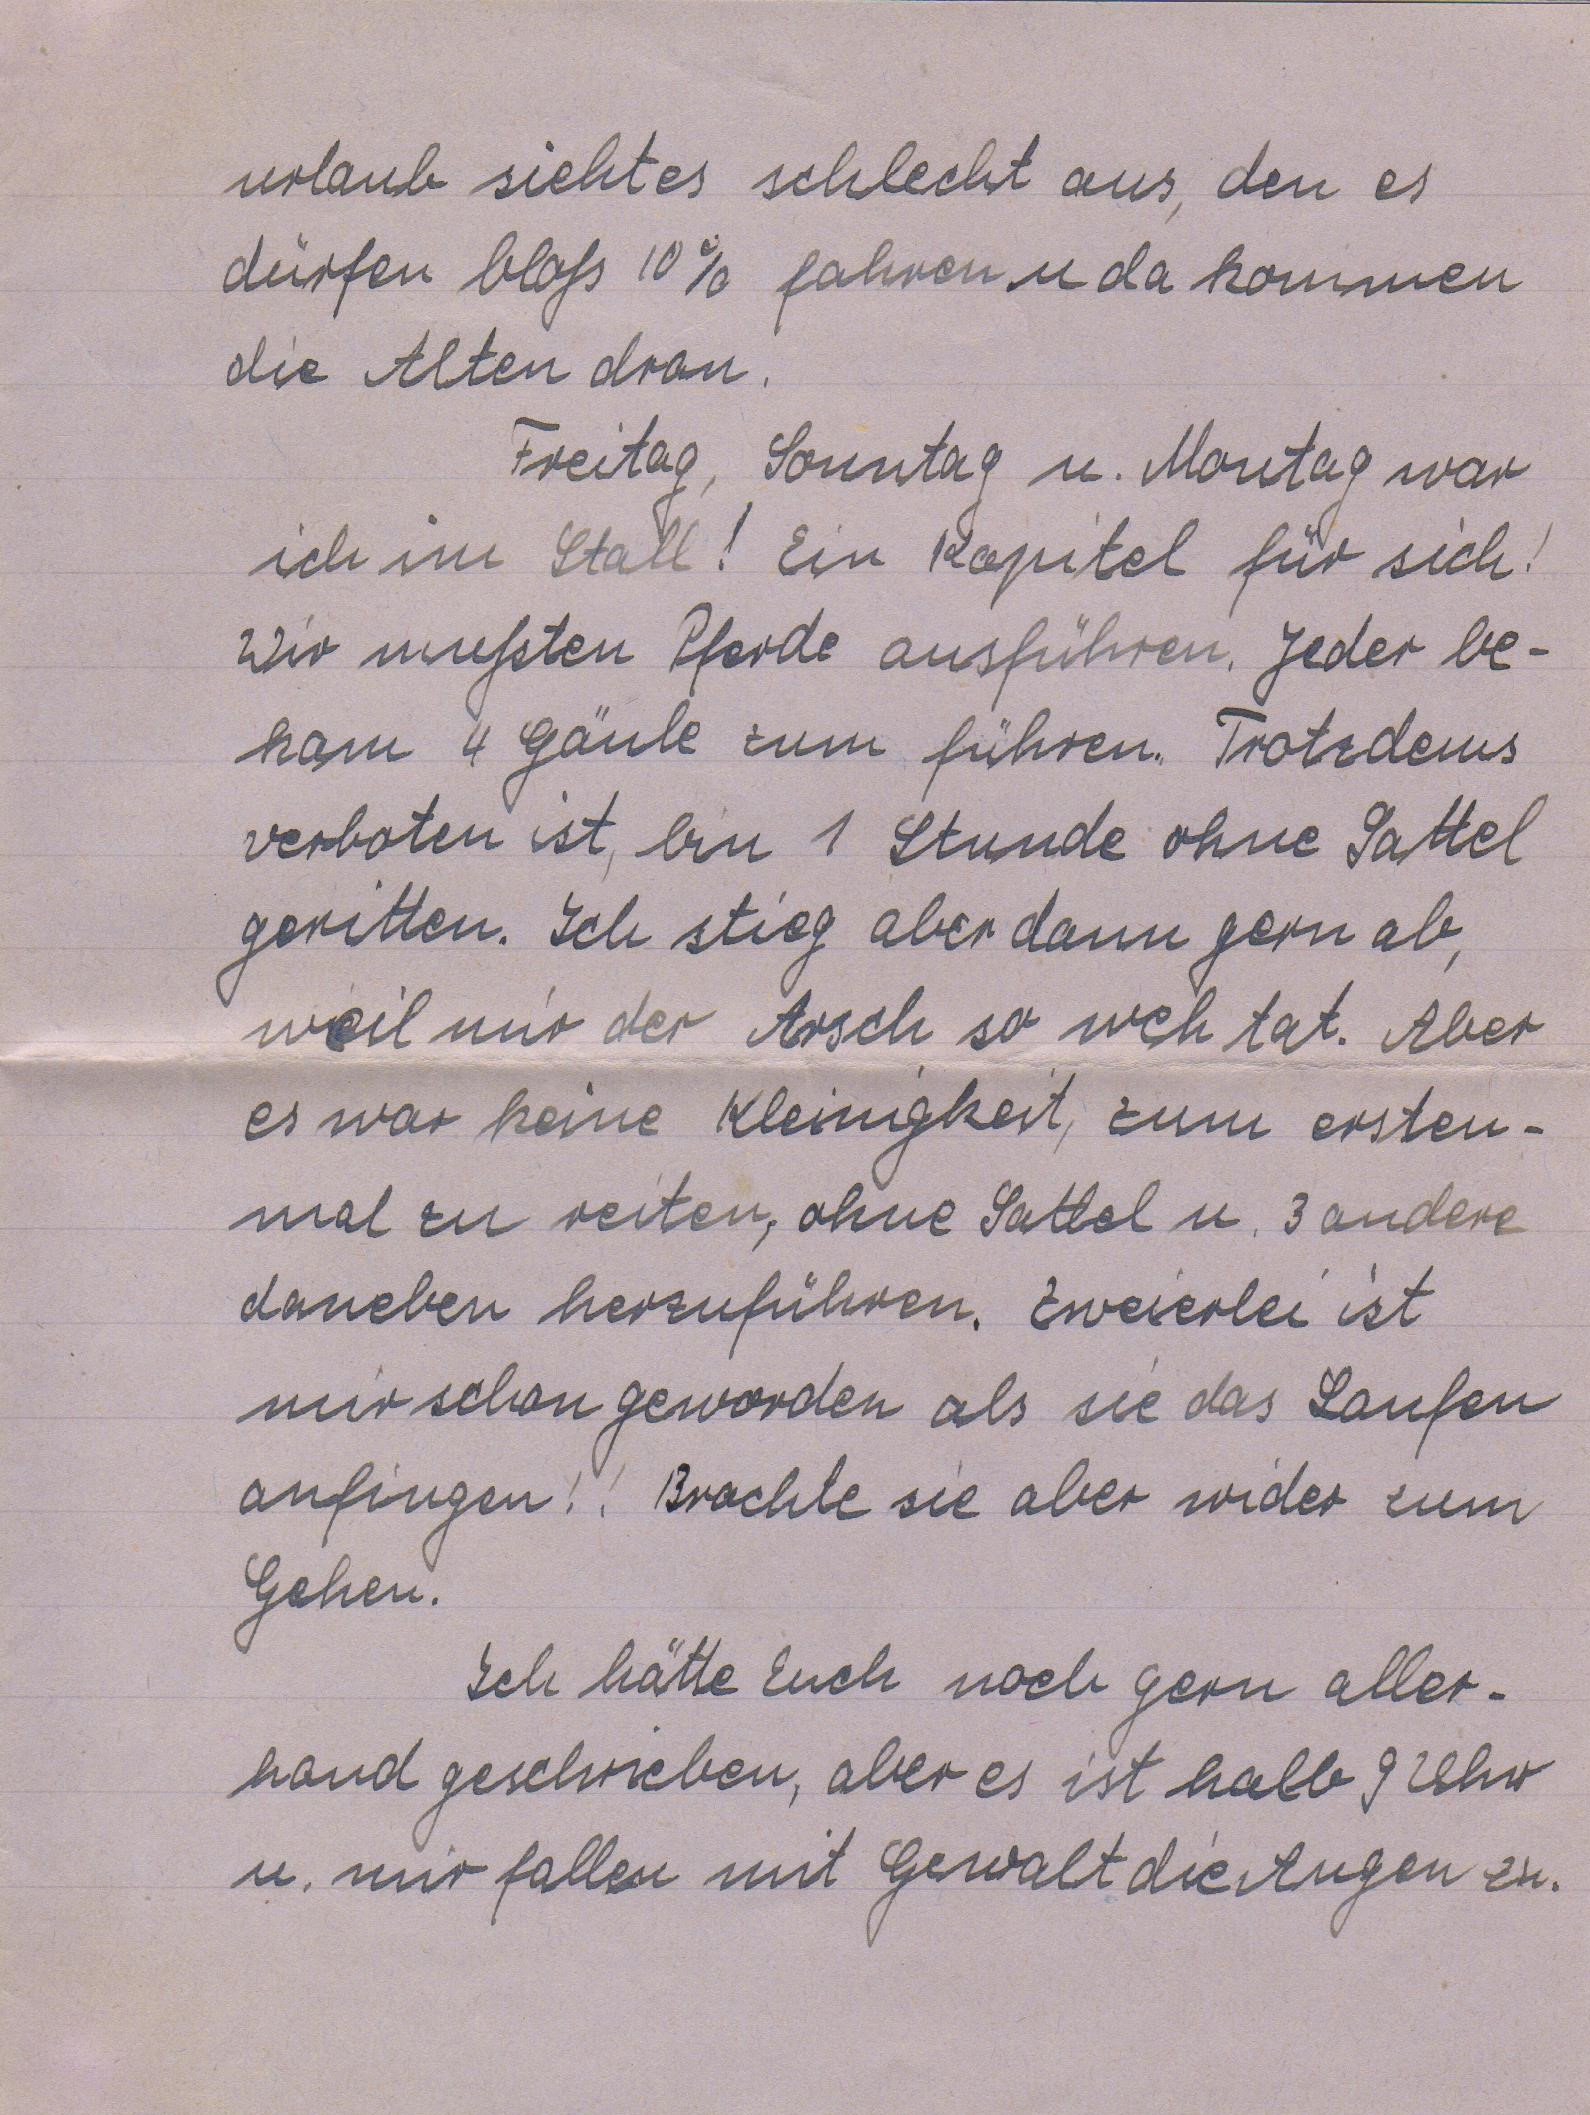 urlaub sieht es schlecht aus, den es
dürfen bloß 10% fahren u da kommen
die Alten dran.
Freitag, Sonntag u. Montag war
ich im Stall! Ein Kapitel für sich!
Wir mußten Pferde ausführen. Jeder be-
kam 4 Gäule zum führen. Trotzdems
verboten ist, bin 1 Stunde ohne Sattel
geritten. Ich stieg aber dann gern ab,
weil mir der Arsch so weh tat. Aber
es war keine Kleinigkeit, zum ersten-
mal zu reiten, ohne Sattel u. 3 andere
daneben herzuführen. Zweierlei ist
mir schon geworden als sie das Laufen
anfingen!! Brachte sie aber wider zum
Gehen.
Ich hätte Euch noch gern aller-
hand geschrieben, aber es ist halb 9 Uhr
u. mir fallen mit Gewalt die Augen zu.